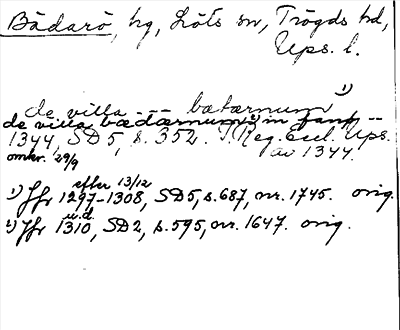 Bådarö, hg, Löts sn, Trögds hd,
Ups. l.
de villa -- bætærnum 1)
de villa bædærnum 2) in
1344, SD 5, s. 352. I. Reg. Eccl. Ups.
omkr. 29/9 av 1344.
efter 13/12
1) Jfr 1297-1308, SD 5, s. 687, nr. 1745. orig.
u.d.
2) Jfr 1310, SD 2, s. 595, nr. 1647. orig.